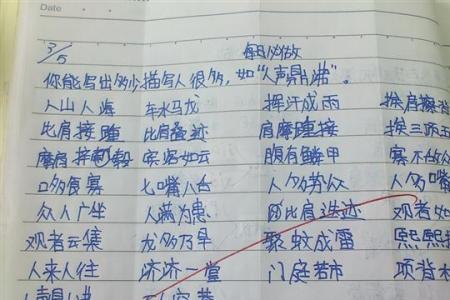 Date
3/5 每日必做
你能写出多少描写人很多，如“人声鼎沸”。
人山人海 车水马龙 挥汗成雨 挨肩擦
比肩接踵 比肩叠迹 肩摩踵接 挨三顶五
摩肩 毂 宾客如云 腹有鳞甲 寡不敌众
口多食寡 七嘴八舌 人多势众 人多嘴
众人广坐 人满为患 比肩迭迹 观者如
观者云集 龙多乃旱 聚蚊成雷 熙熙
人来人往 济济一堂 门庭若市 项背
人声鼎沸